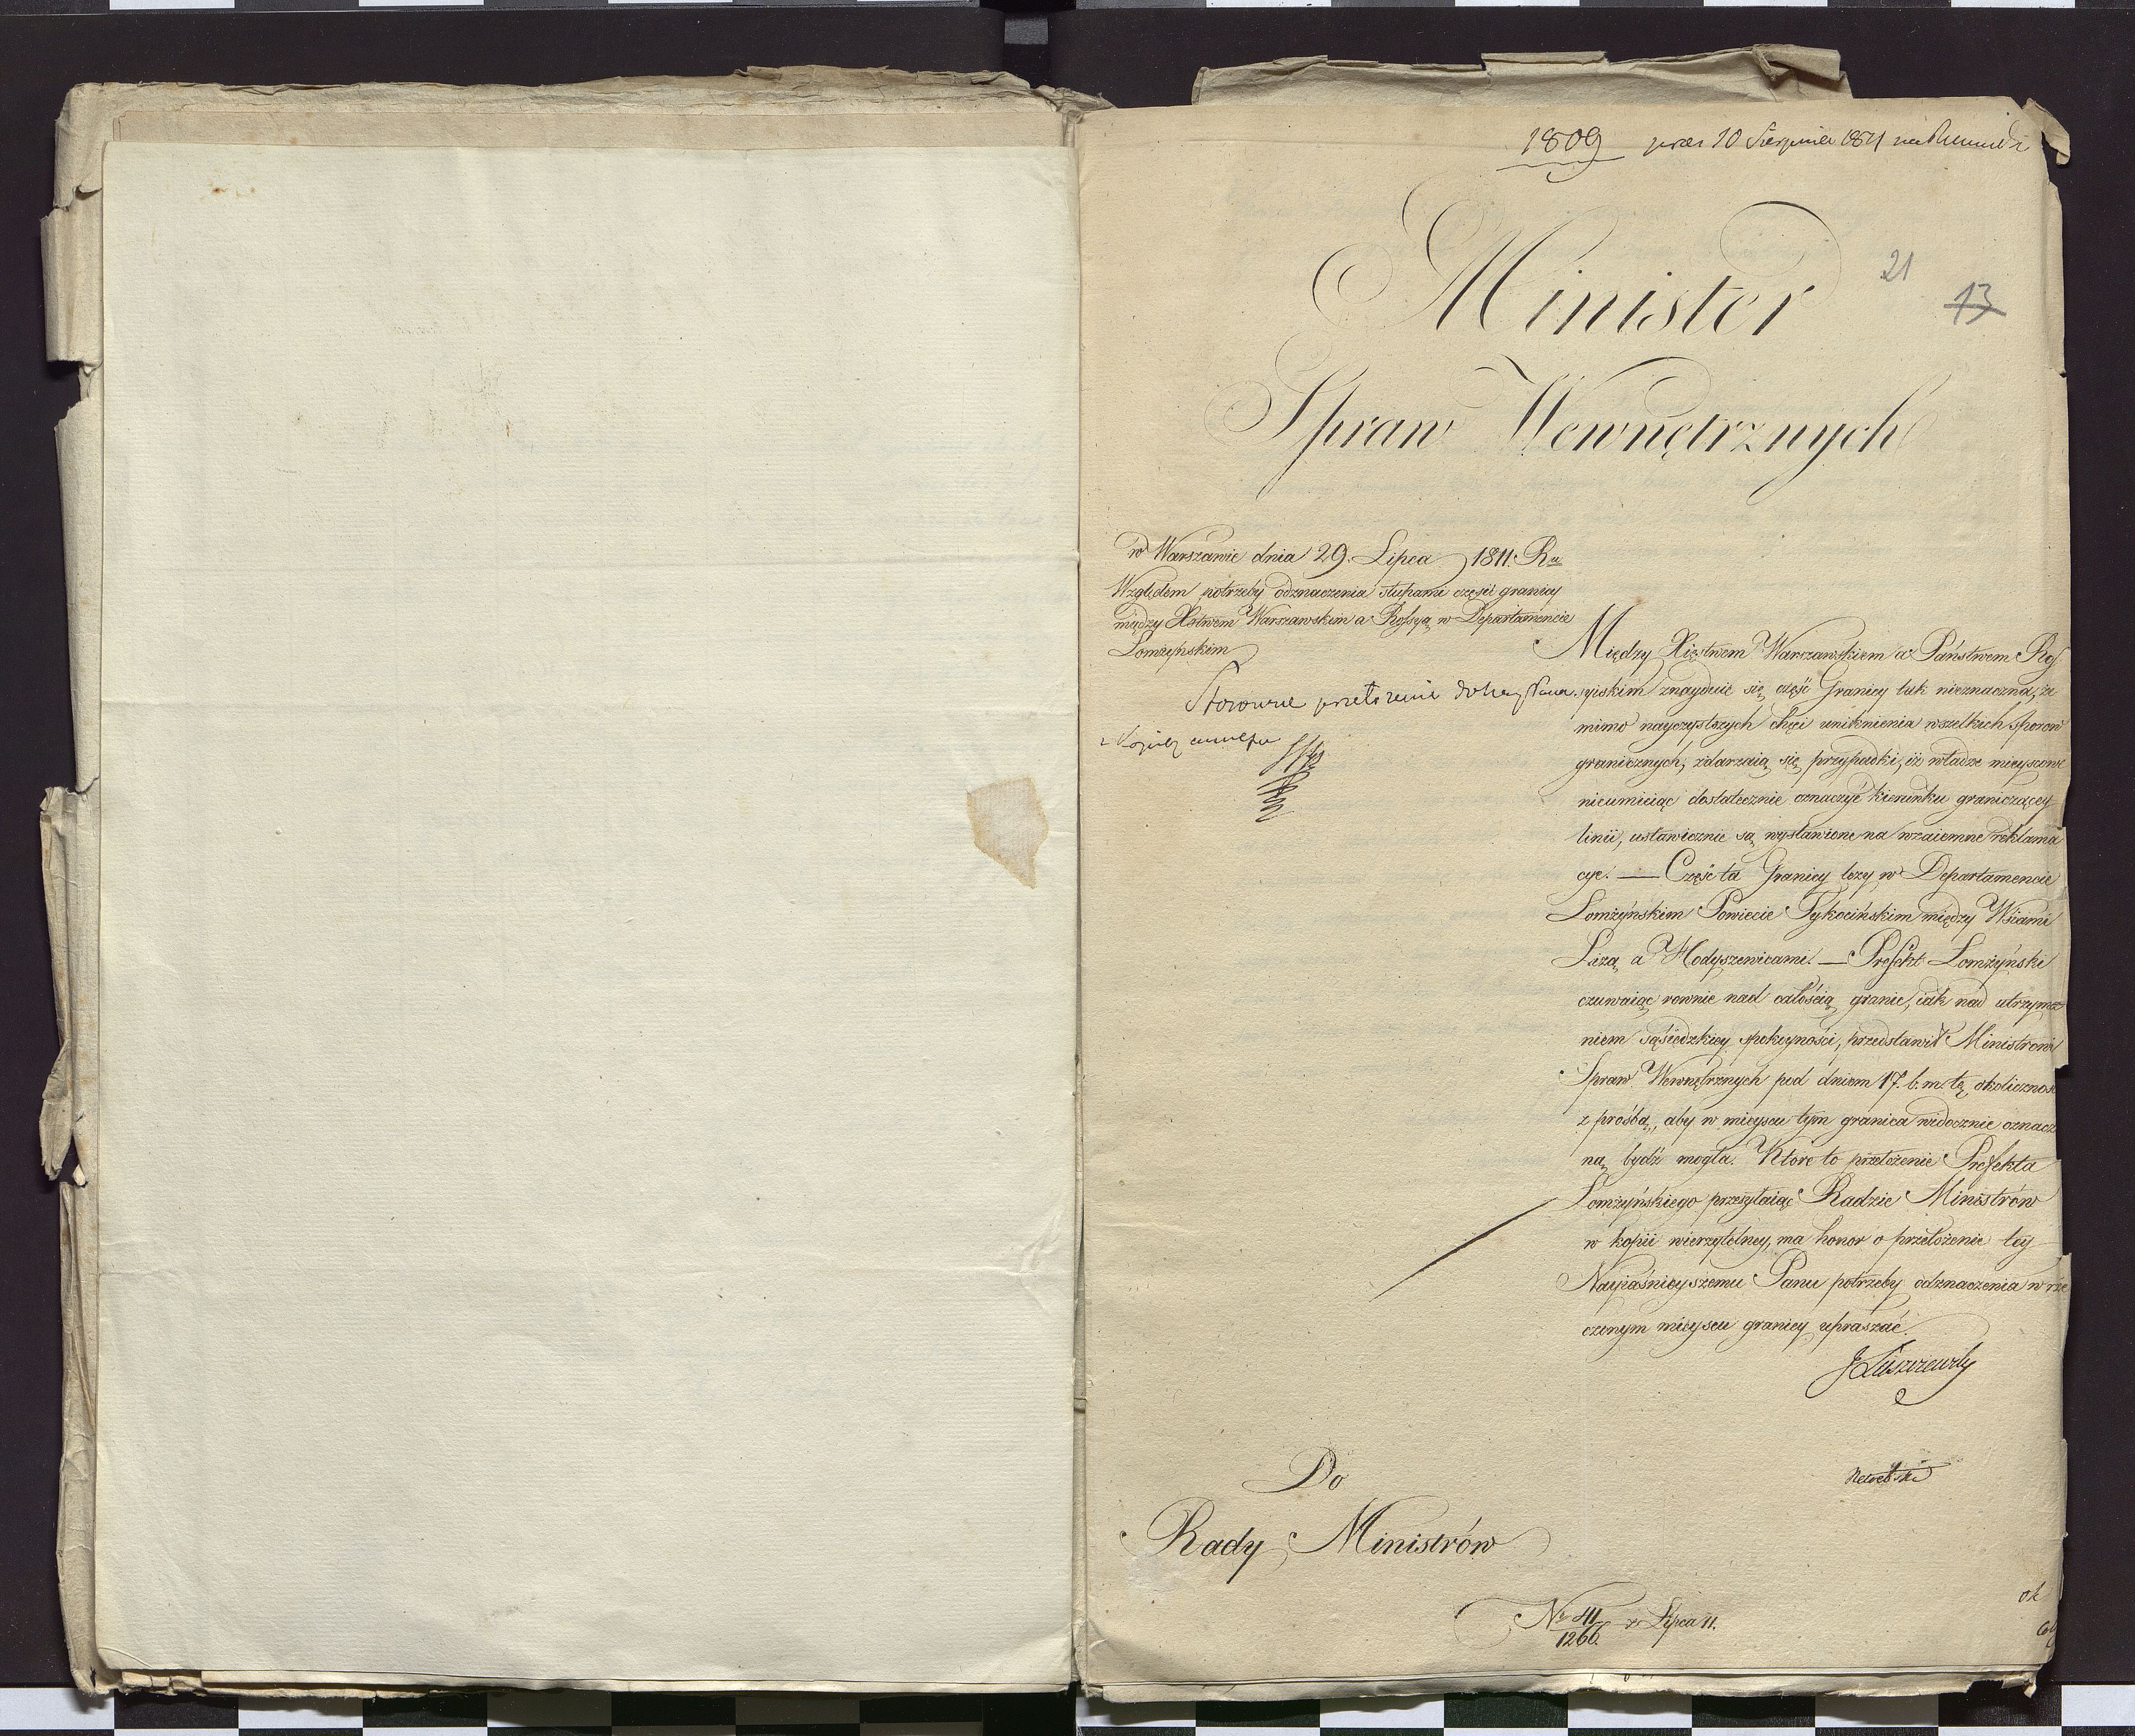 1809 prez 10 Sierpnia 1811
21
13
Minister
Spraw Wewnętrznych
w Warszawie dnia 29. Lipca 1811. Ru
Względem potrzeby odznaczenia słupami części granicy
między Xstwem Warszawskim a Rossyą w Departamencie
Łomżyńskim
Stosowne przełożenie do
z kopią
Między Xięstwem Warszawskiem a Państwem Ros
syiskim znayduie się część Granicy tak nieznaczna, że
mimo nayczystszych chęci uniknienia wszelkich sporow
granicznych, zdarzaią się przypadki, iż władze mieyscowe
nieumieiąc dostatecznie oznaczyć kierunku graniczącey
linii, ustawicznie są wystawione na wzaiemne reklama
cye. — Część ta Granicy leży w Departamencie
Łomżyńskim Powiecie Tykocińskim między Wsiami
Lizą a Hodyszewicami. — Prefekt Łomżyński
czuwaiąc rownie nad całością granic, iak nad utrzyma
niem sąsiedzkiey spokoyności, przedstawił Ministrowi
Spraw Wewnętrznych pod dniem 17. b. m. tę okoliczność
z prośbą, aby w mieyscu tym granica widocznie oznaczo
ną bydź mogła. Ktore to przełożenie Prefekta
Łomżyńskiego przesyłaiąc Radzie Ministrów
w kopii wierzytelney, ma honor o przełożenie tey
Nayiaśnieyszemu Panu potrzeby odznaczenia w rze
czonym mieyscu granicy upraszać.
J Łuszczewsky
Do
Rady Ministrów
No 411/1266. z Lipca 11.